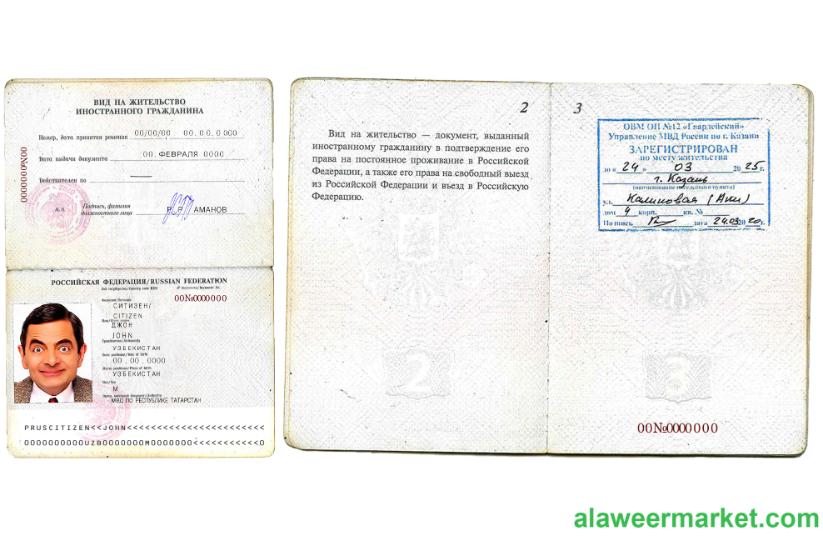 ВИД НА ЖИТЕЛЬСТВО
ИНОСТРАННОГО ГРАЖДАНИНА
Номер, дата принятия решения 00/00/00 00.0.0000
Дата выдачи документа 00. ФЕВРАЛЯ 0000
Действителен по
0000000№00
М.П.
Подпись, фамилия
должностного лица АМАНОВ
РОССИЙСКАЯ ФЕДЕРАЦИЯ/RUSSIAN FEDERATION
00№0000000
СИТИЗЕН/
CITIZEN
ДЖОН
JOHN
УЗБЕКИСТАН
00.00.0000
УЗБЕКИСТАН
М
МВД ПО РЕСПУБЛИКЕ ТАТАРСТАН
PRUSCITIZEN<<JOHN<<<<<<<<<<<<<<<<<<<<<<<<<<<
2
Вид на жительство — документ, выданный
иностранному гражданину в подтверждение его
права на постоянное проживание в Российской
Федерации, а также его права на свободный выезд
из Российской Федерации и въезд в Российскую
Федерацию.
2
3
ОВМ ОП №12 «Гвардейский»
Управление МВД России по г. Казани
ЗАРЕГИСТРИРОВАН
по месту жительства
до « 24 » 03 2025г.
г. Казань
(наименование населенного пункта)
ул. Калиновая (Аки)
дом 4 корп. кв. №
Подпись дата 24.03.2020г.
3
00№0000000
alaweermarket.com